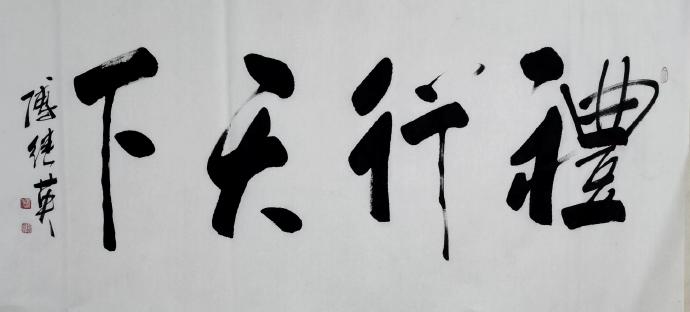 禮行天下
傅继英